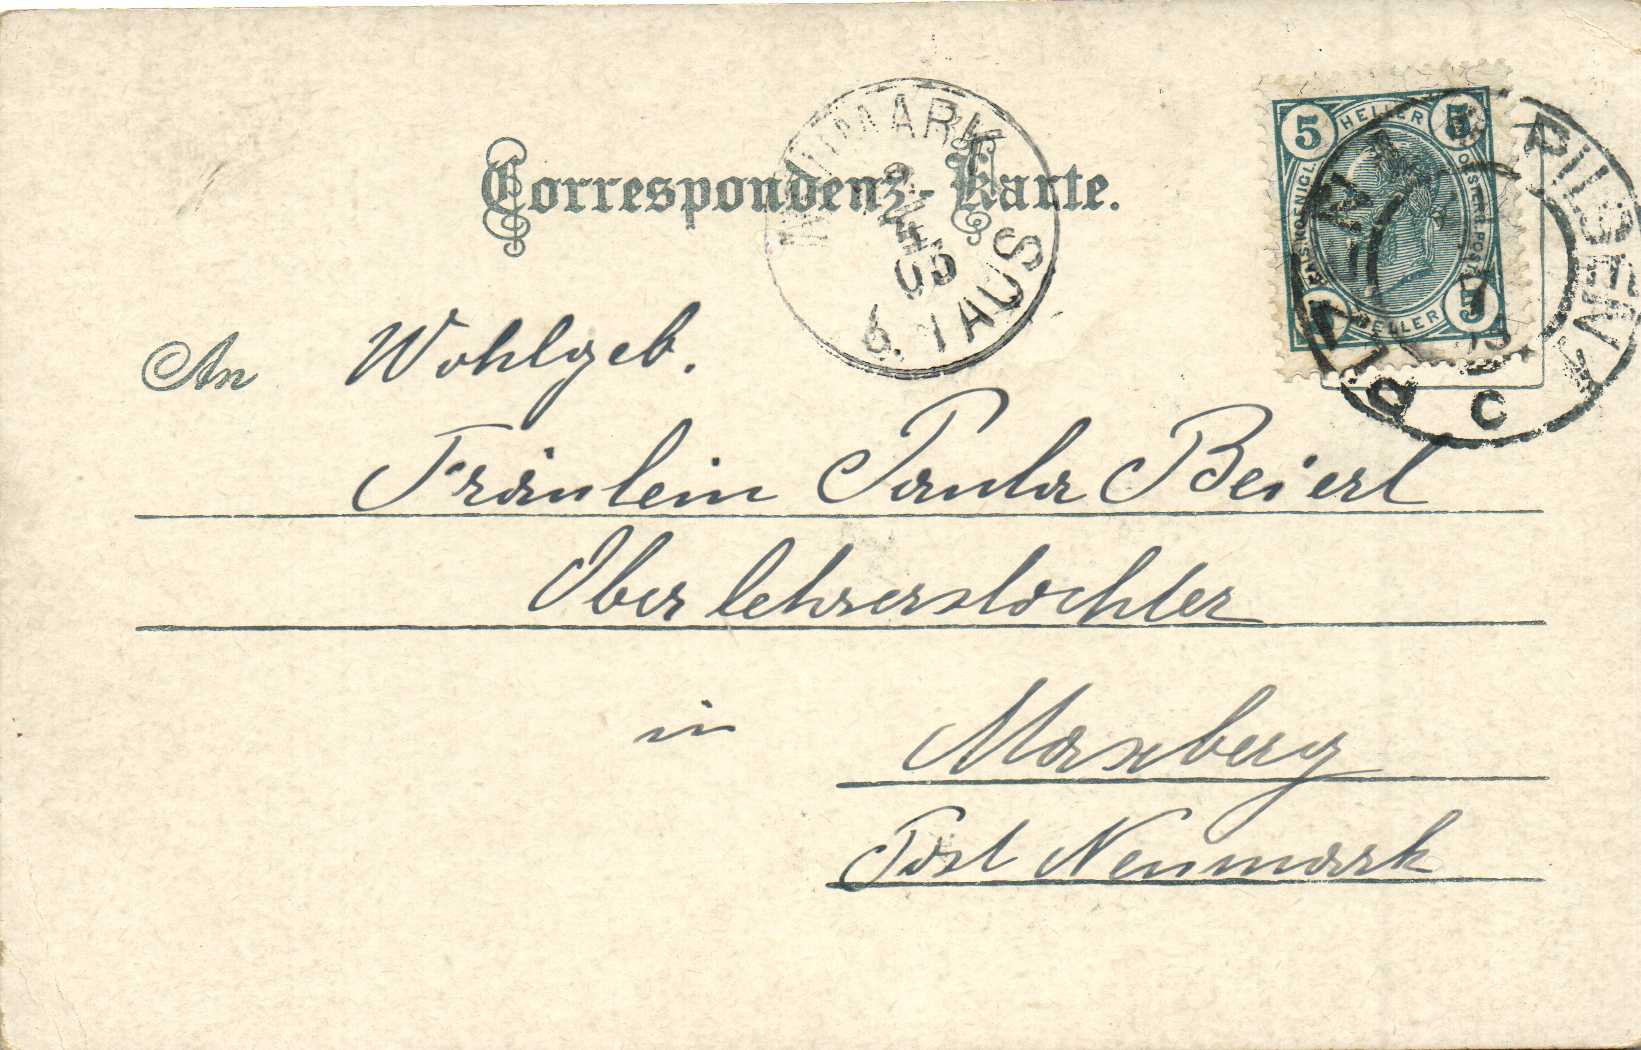 Correspondenz-Karte.
NEUMARK
05
b. TAUS
5 HELLER 5
KAIS. KOENIGL. OESTERR. POST
5 HELLER 5
PILSEN 1
PLZEŇ
C
An Wohlgeb.
Fräulein Paula Beierl
Oberlehrerstochter
in Maxberg
Post Neumark